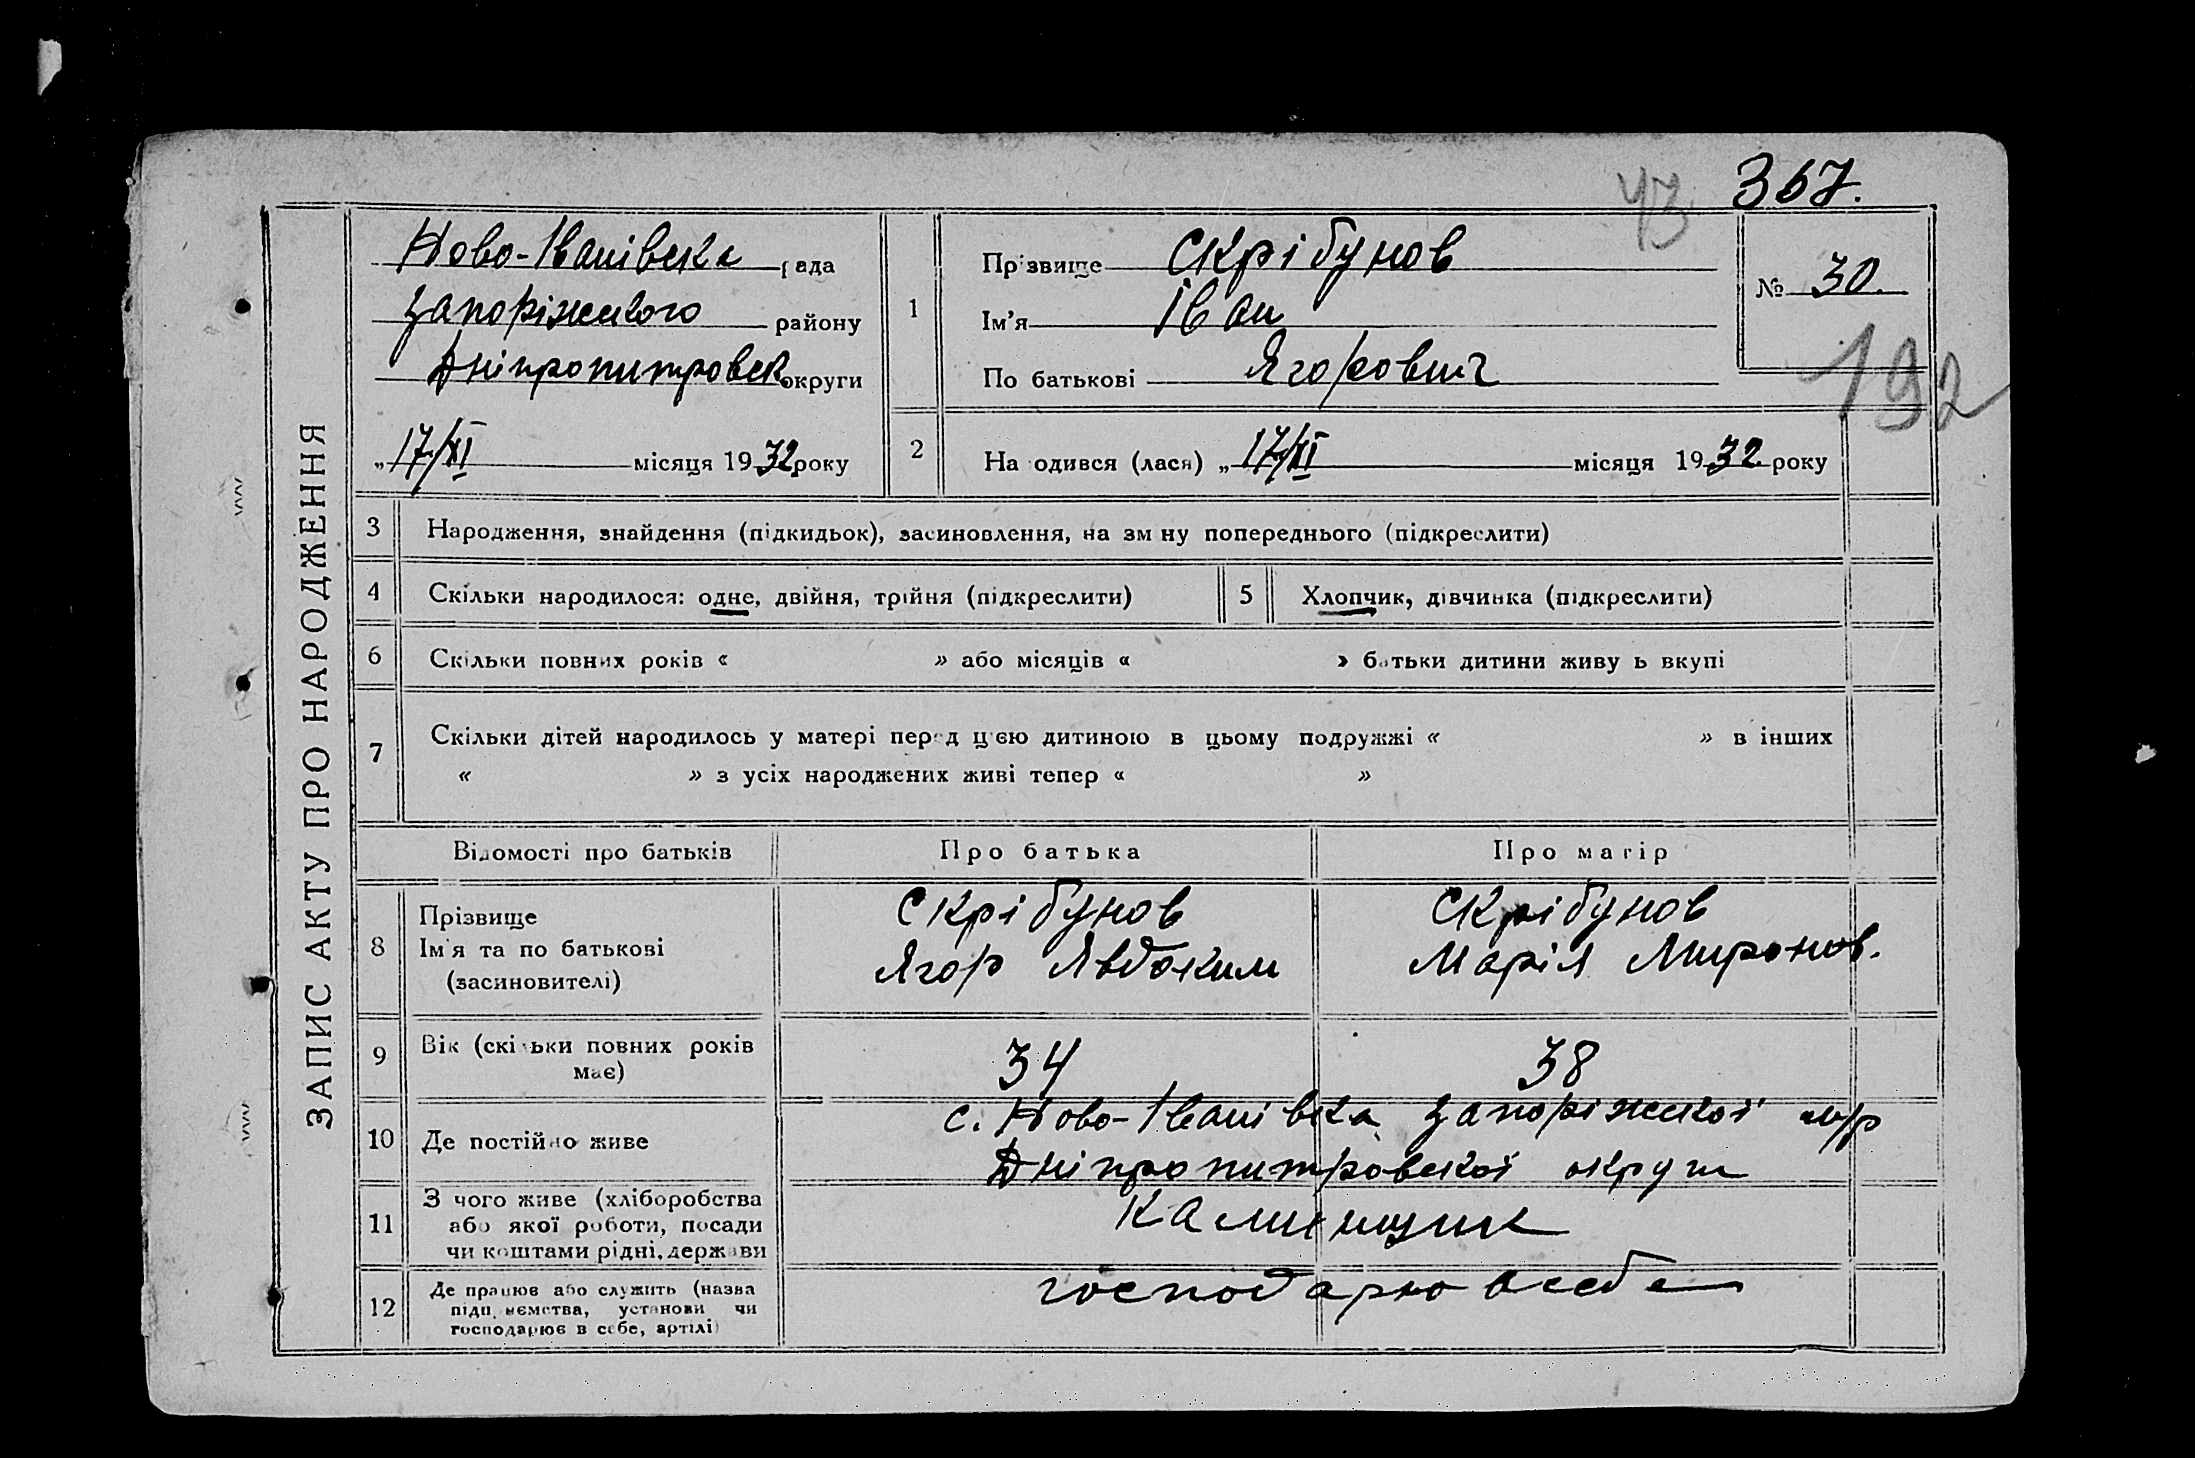 43 367.
ЗАПИС АКТУ ПРО НАРОДЖЕННЯ
Ново-Іванівска рада
Запоріжського району
Дніпропитровск округи
„17/XI місяця 1932 року
1
Прізвище Скрібунов
Ім'я Іван
По батькові Ягорович
№ 30.
192
2 На одився (лася) „17/XI місяця 1932 року
3 Народження, знайдення (підкидьок), засиновлення, на зм ну попереднього (підкреслити)
4 Скільки народилося: одне, двійня, трійня (підкреслити) 5 Хлопчик, дівчинка (підкреслити)
6 Скільки повних років « » або місяців « » батьки дитини живу ь вкупі
7 Скільки дітей народилось у матері перед цією дитиною в цьому подружжі « » в інших
« » з усіх народжених живі тепер « »
Відомості про батьків Про батька Про матір
8 Прізвище
Ім'я та по батькові
(засиновителі)
Скрібунов
Ягор Явдоким
Скрібунов
Марія Миронов.
9 Вік (скільки повних років
має)
34 38
10 Де постійно живе
с. Ново-Іванівка Запоріжської м/р
Дніпропитровскої округи
11 З чого живе (хліборобства
або якої роботи, посади
чи коштами рідні, держави
12 Де працює або служить (назва
підп иємства, установи чи
господарює в себе, артілі)
господарю всебе